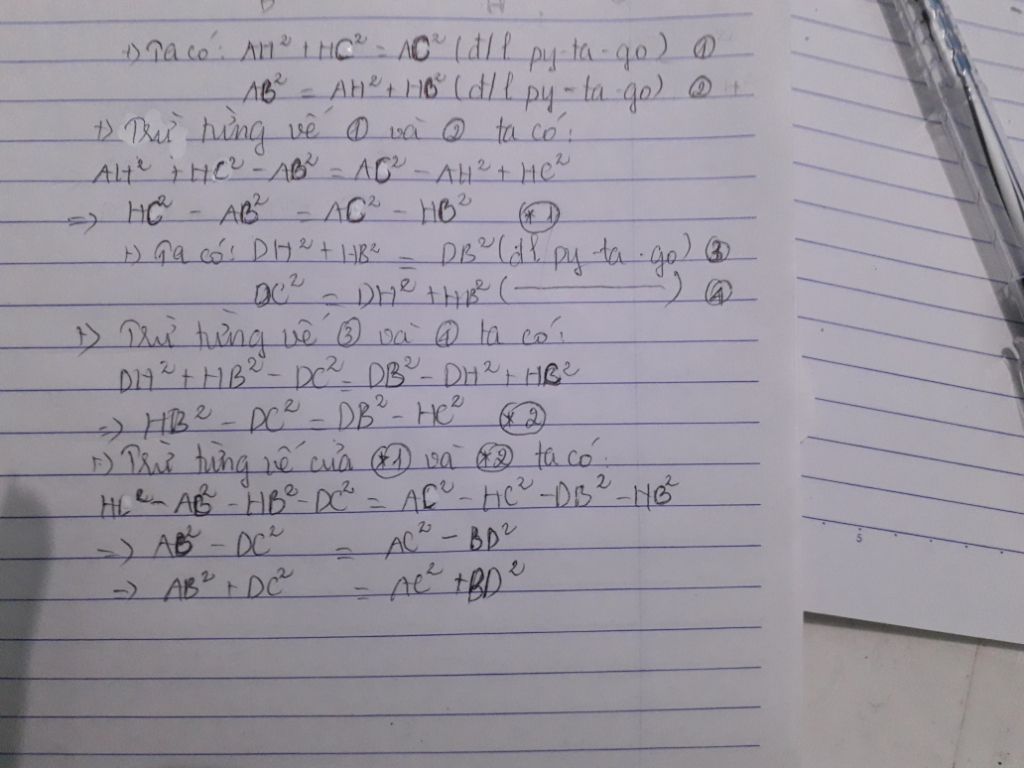 +) Ta có: AH² + HC² = AC² (đ/l py-ta-go) ①
AB² = AH² + HB² (đ/l py-ta-go) ②
+) Trừ từng vế ① và ② ta có:
AH² + HC² - AB² = AC² - AH² + HC²
=> HC² - AB² = AC² - HB² (*1)
+) Ta có: DH² + HB² = DB² (đl py-ta-go) ③
DC² = DH² + HB² (———) ④
+) Trừ từng vế ③ và ④ ta có:
DH² + HB² - DC² = DB² - DH² + HC²
=> HB² - DC² = DB² - HC² (*2)
+) Trừ từng vế của (*1) và (*2) ta có
HC² - AB² - HB² - DC² = AC² - HC² - DB² - HB²
=> AB² - DC² = AC² - BD²
=> AB² + DC² = AC² + BD²
5